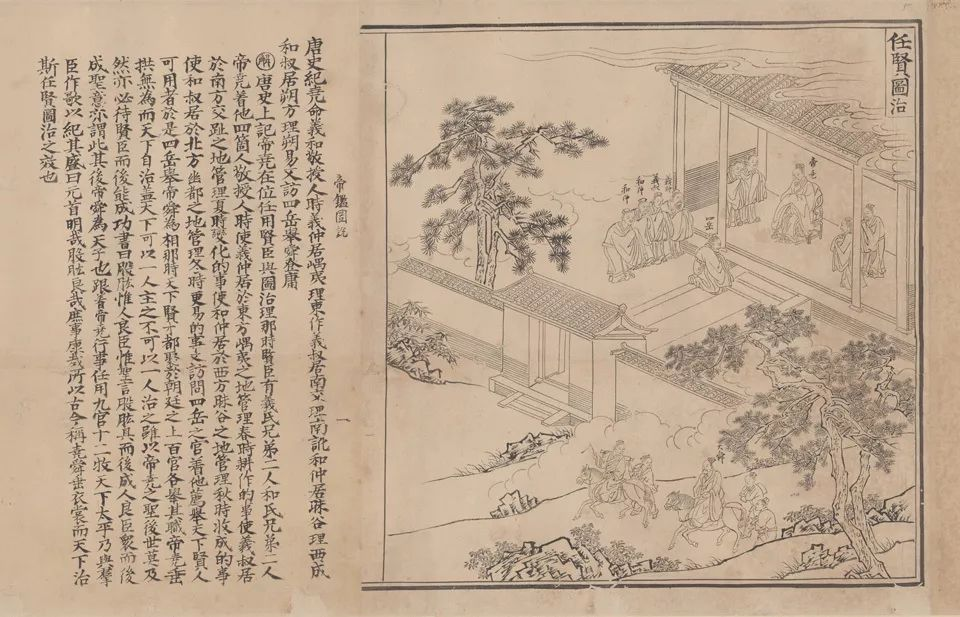 任賢圖治
帝堯
羲仲
羲叔
和仲
和叔
四岳
帝鑑圖說
一
唐史紀堯命羲和敬授人時羲仲居嵎夷理東作羲叔居南交理南訛和仲居昧谷理西成
和叔居朔方理朔易又訪四岳舉舜登庸
解唐史上記帝堯在位任用賢臣與圖治理那時賢臣有羲氏兄弟二人和氏兄弟二人
帝堯着他四箇人敬授人時使羲仲居於東方嵎夷之地管理春時耕作的事使羲叔居
於南方交趾之地管理夏時變化的事使和仲居於西方昧谷之地管理秋時收成的事
使和叔居於北方幽都之地管理冬時更易的事又訪問四岳之官着他薦舉天下賢人
可用者於是四岳舉帝舜為相那時天下賢才都聚於朝廷之上百官各舉其職帝堯垂
拱無為而天下自治蓋天下可以一人主之不可以一人治之雖以帝堯之聖後世莫及
然亦必待賢臣而後能成功書曰股肱惟人良臣惟聖言股肱具而後成人良臣衆而後
成聖意亦謂此其後帝舜為天子也跟着帝堯行事任用九官十二牧天下太平乃與羣
臣作歌以紀其盛曰元首明哉股肱良哉庶事康哉所以古今稱堯舜垂衣裳而天下治
斯任賢圖治之效也